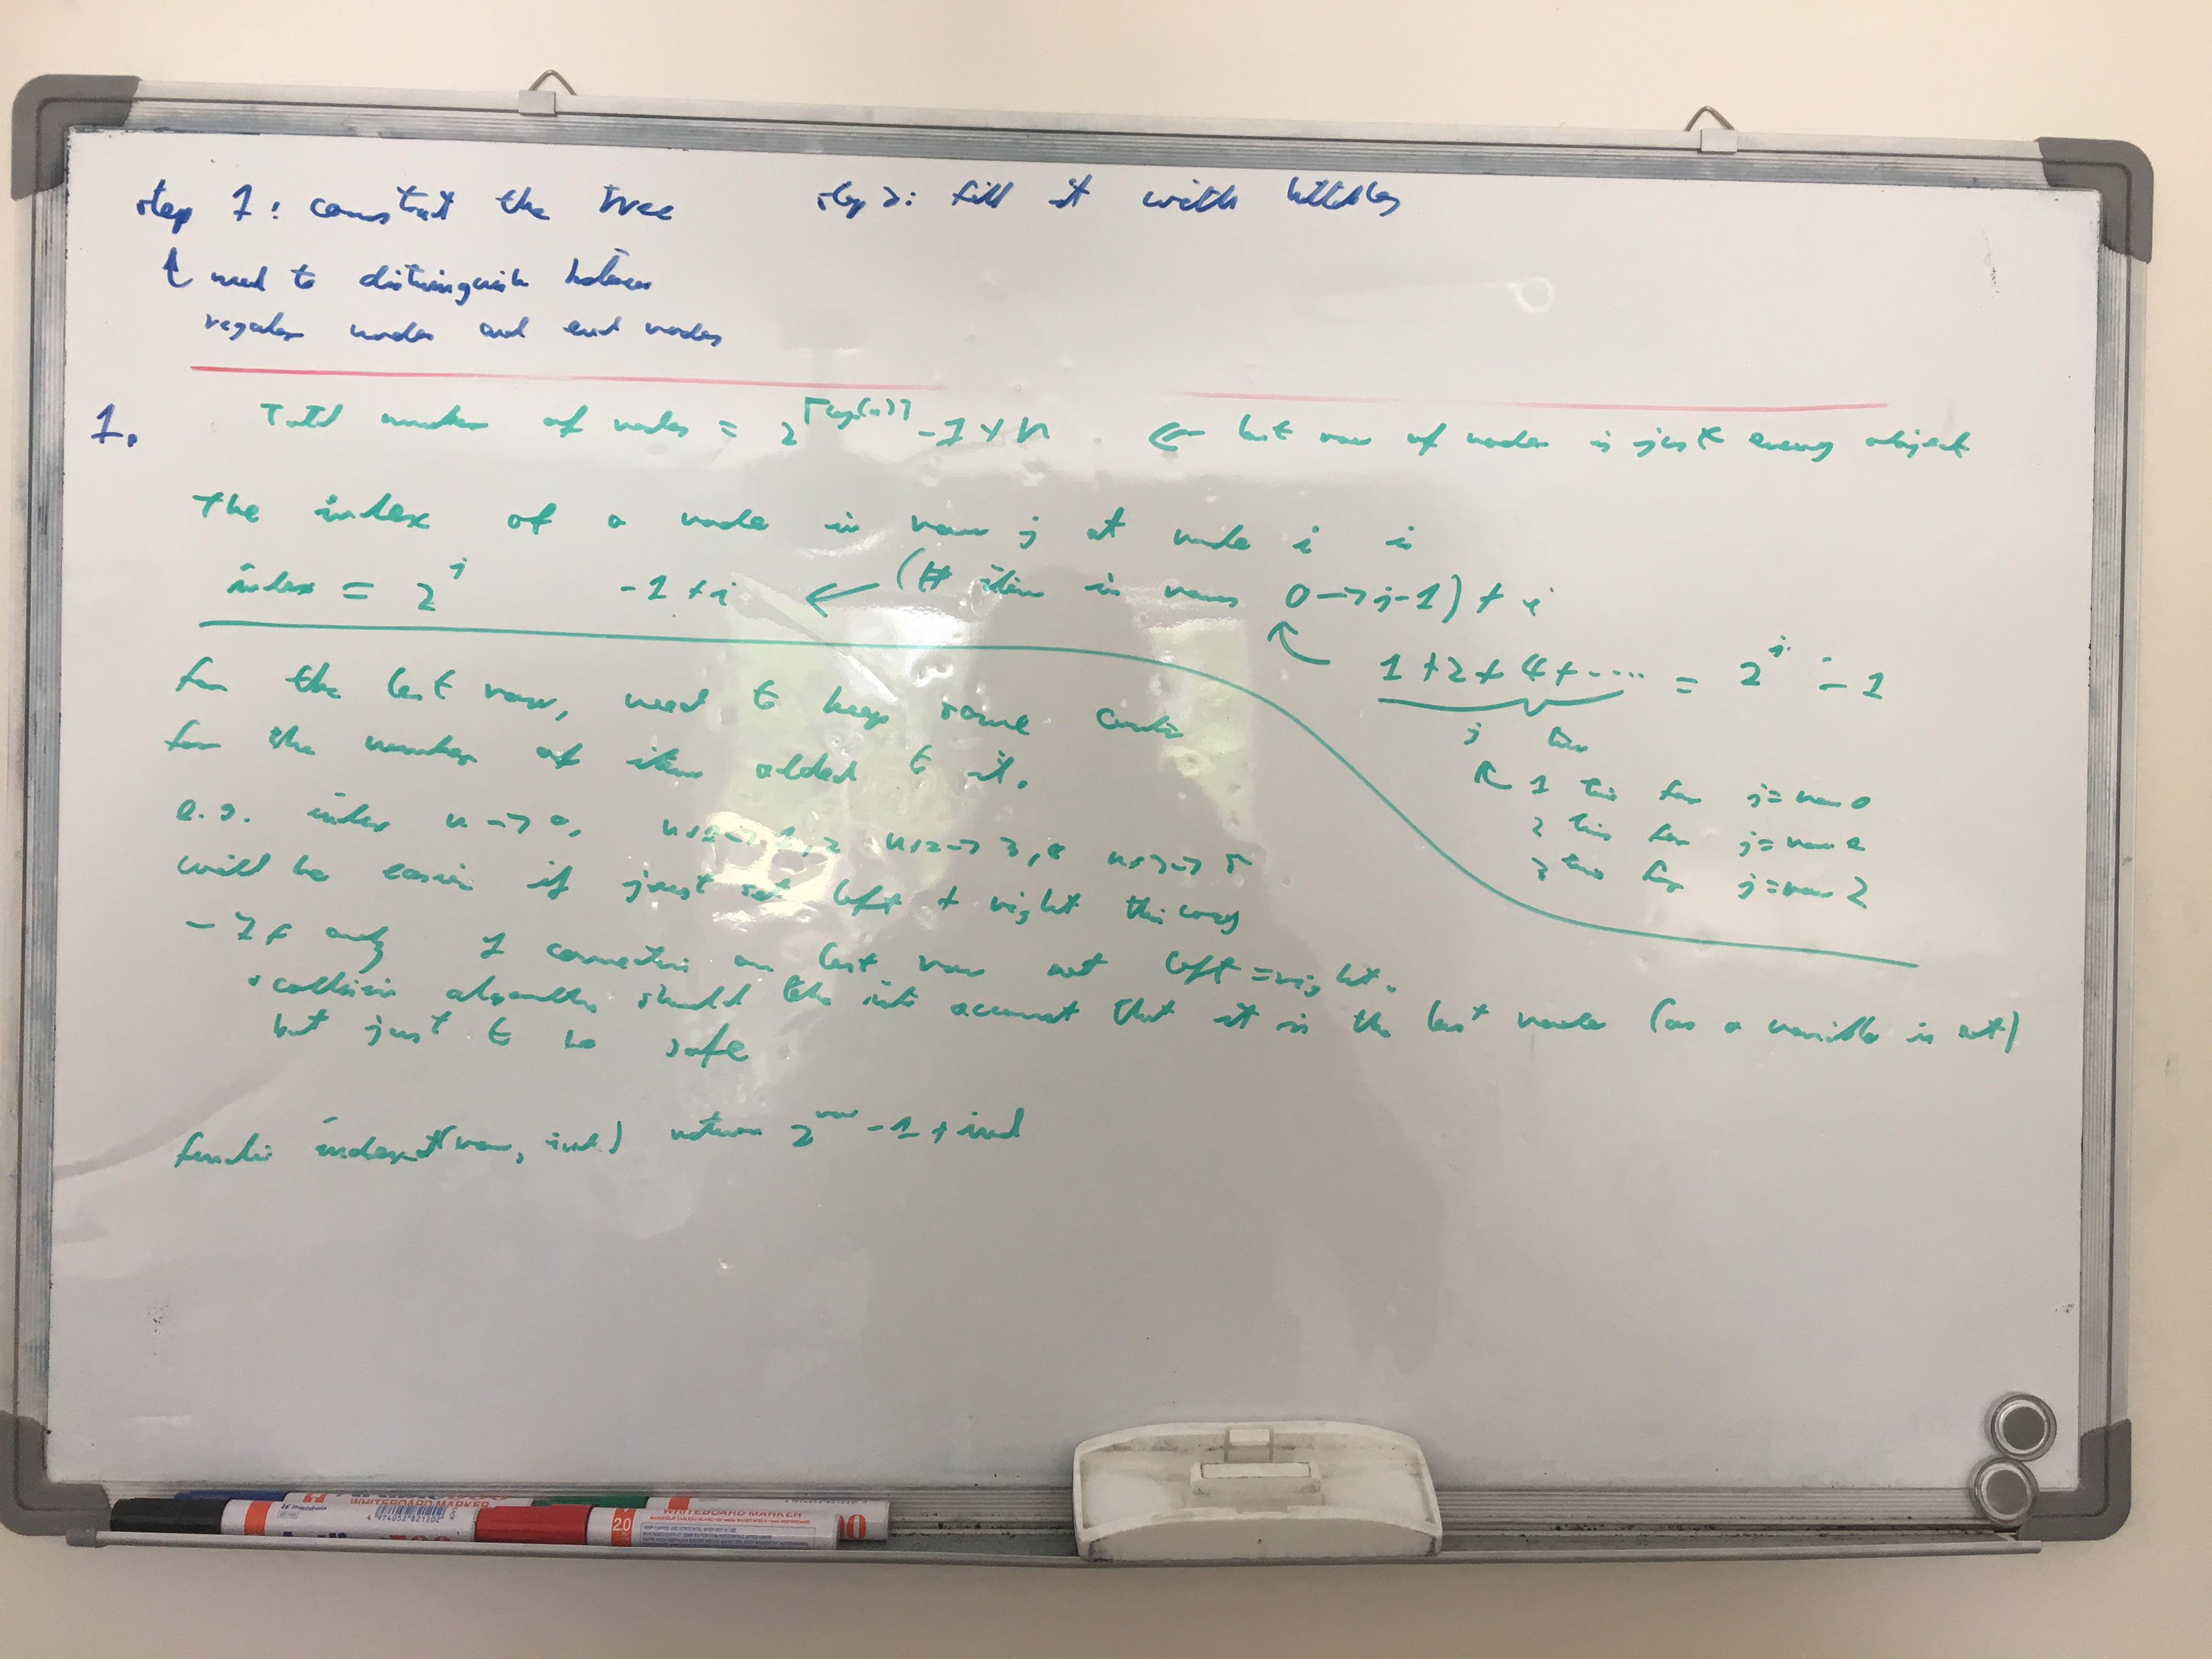 step 1: construct the tree step 2: fill it with hitboxes
↑ need to distinguish between
regular nodes and end nodes
1. Total number of nodes = 2^⌈log(n)⌉ - 1 + n ← last row of nodes is just every object
The index of a node in row j at node i is
index = 2^j - 1 + i ← (# items in rows 0 → j-1) + i
1 + 2 + 4 + .... = 2^j - 1
j
1 for j = row 0
2 for j = row
3 for j = row 2
for the last row, need to keep some
for the number of items added to it.
e.g. index n → 0,
will be easier if just set left + right this way
- If only 1 connection on last row set left = right.
• collision algorithm should take into account that it is the last node (as a variable is set)
but just to be safe
index (row, ind) return 2^row - 1 + ind
WHITEBOARD MARKER
WHITEBOARD MARKER
2.0